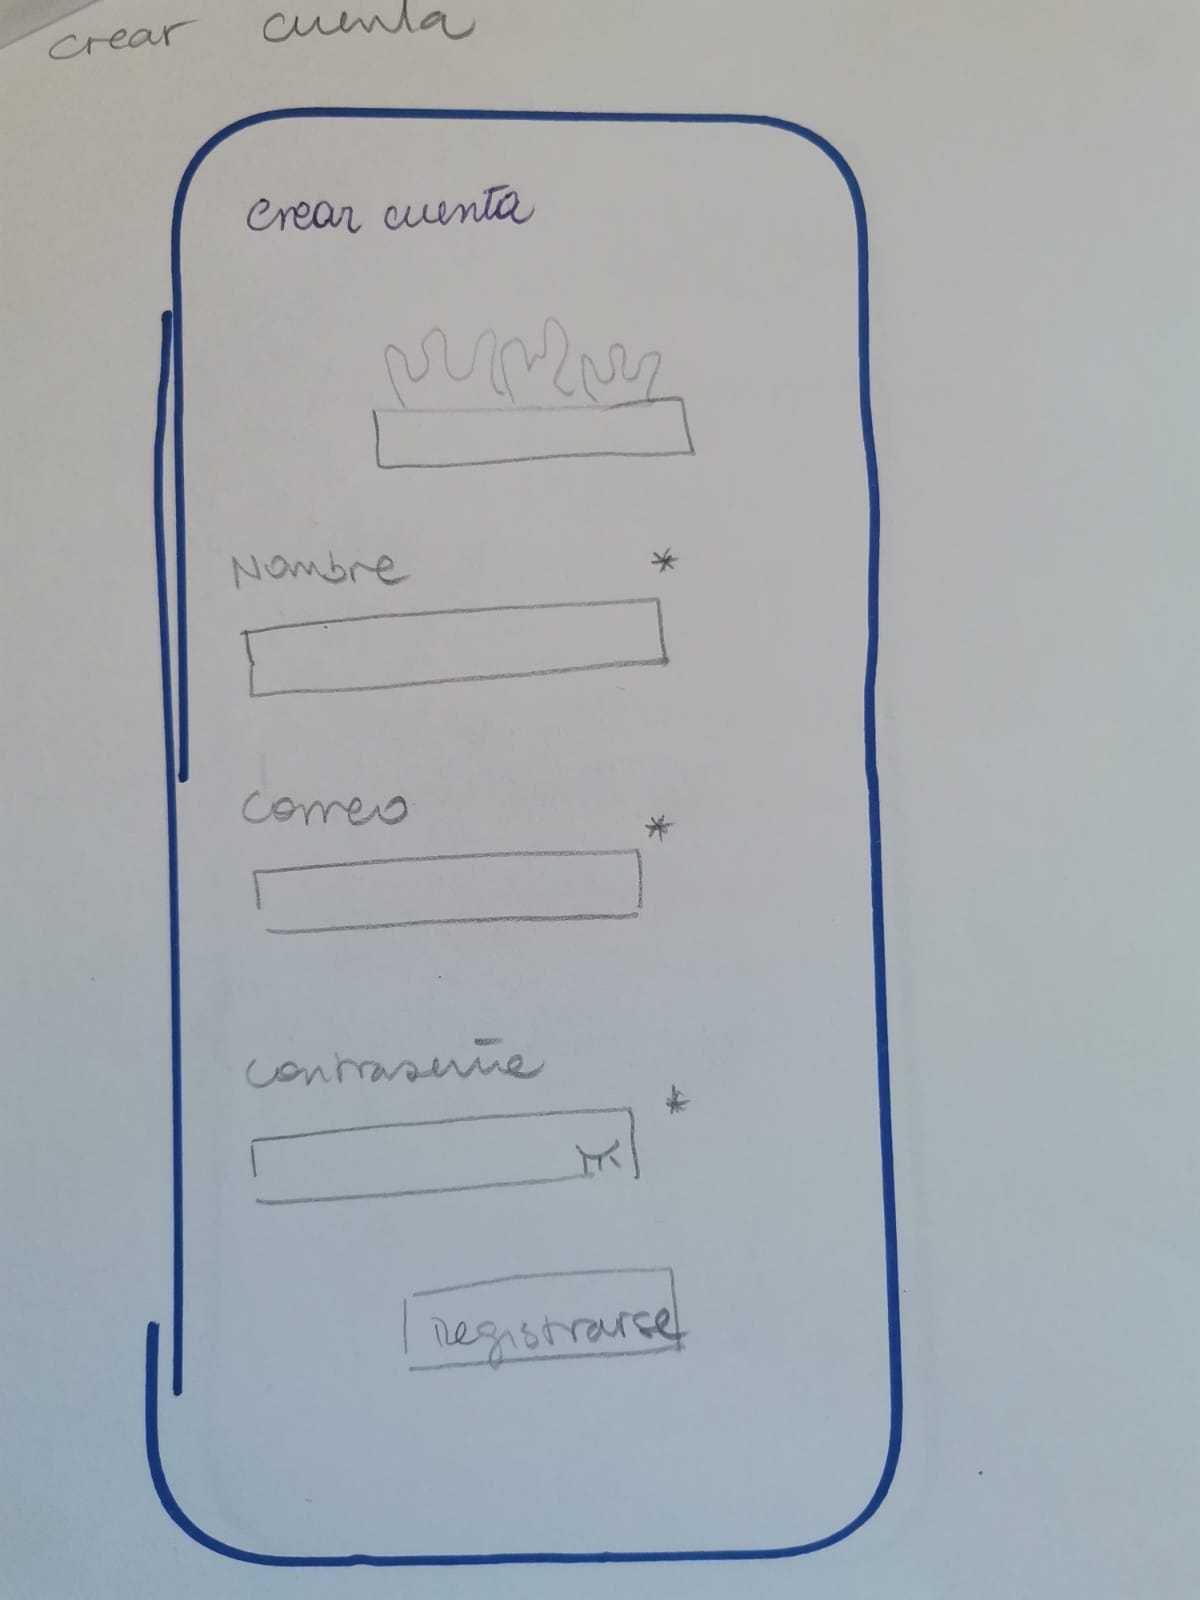 crear cuenta
crear cuenta
Nombre *
Correo
*
Contraseña
*
Registrarse